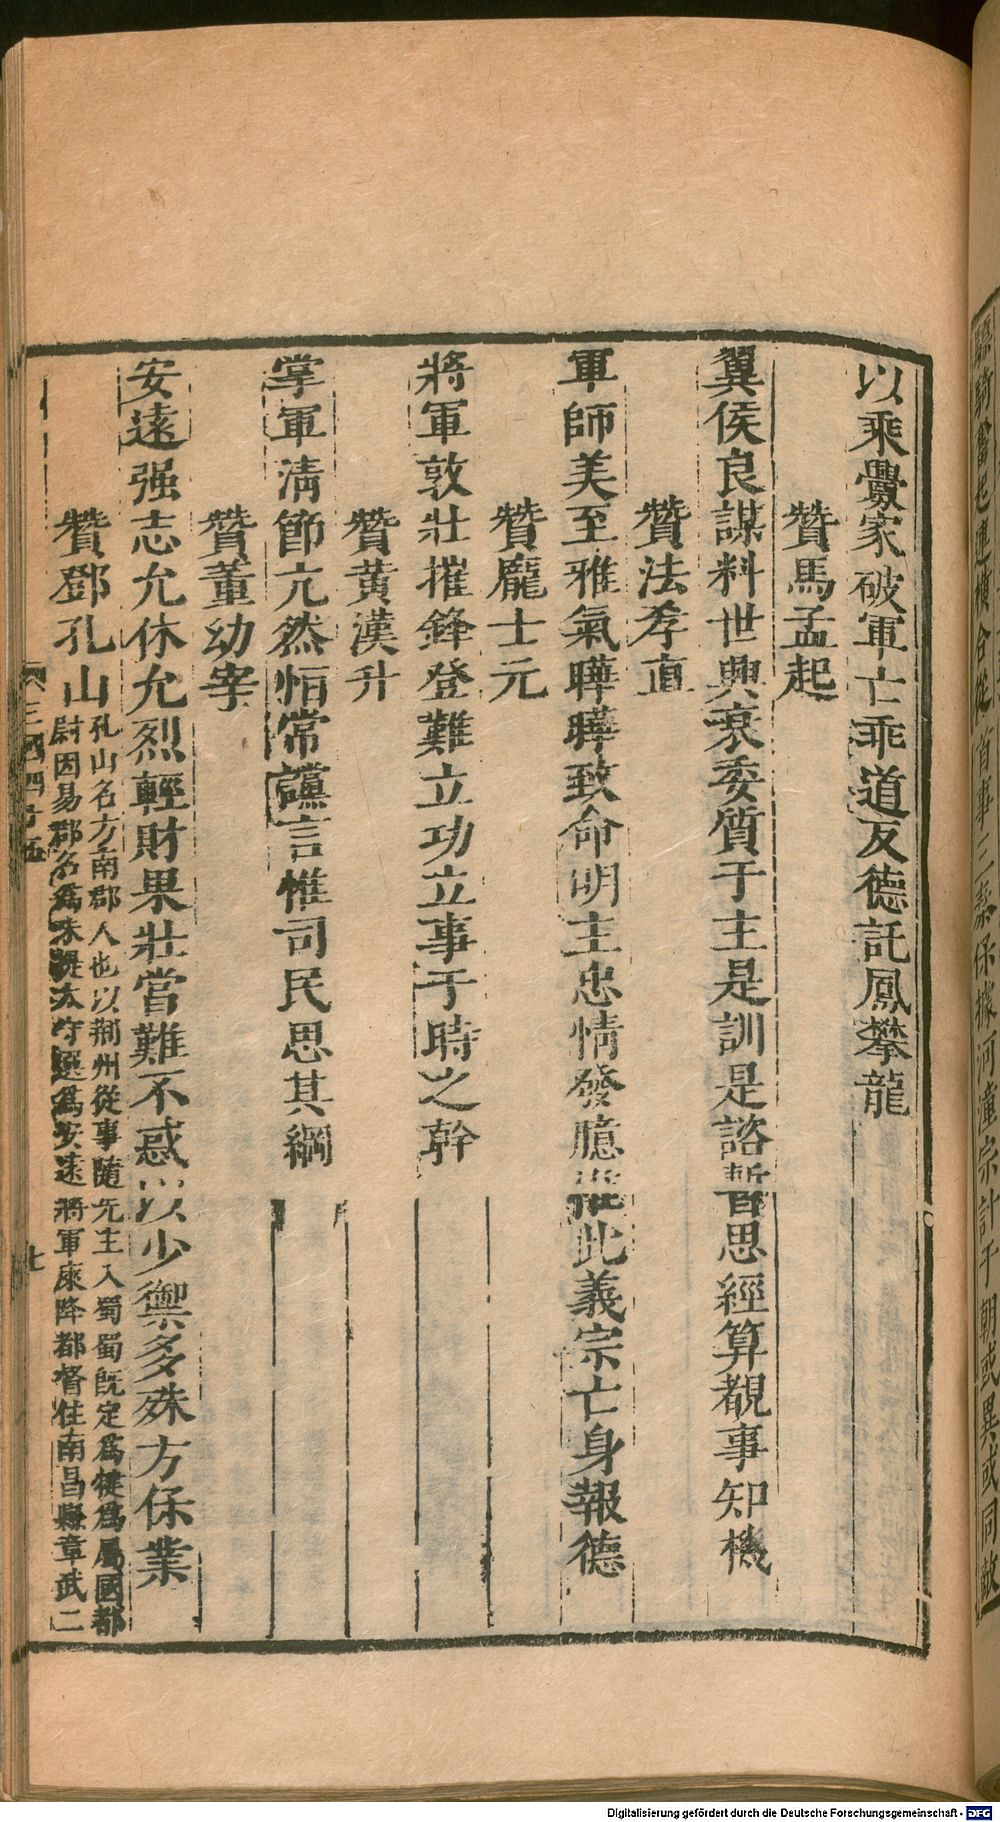 以乘釁家破軍亡乖道反德託鳳攀龍
贊馬孟起
翼侯良謀料世興衰委質于主是訓是諮暫思經算覩事知機
贊法孝直
軍師美至雅氣曄曄致命明主忠情發臆惟此義宗亡身報德
贊龐士元
將軍敦壯摧鋒登難立功立事于時之幹
贊黃漢升
掌軍清節亢然恒常讜言惟司民思其綱
贊董幼宰
安遠强志允休允烈輕財果壯當難不惑以少禦多殊方保業
贊鄧孔山
孔山名方南郡人也以荊州從事隨先主入蜀蜀旣定爲犍爲屬國都
尉因易郡名爲朱提太守選爲安遠將軍庲降都督住南昌縣章武二
三國四十五
七
驃騎奮起連橫合從首事三秦保據河潼宗計于朝或異或同敵
Digitalisierung gefördert durch die Deutsche Forschungsgemeinschaft - DFG